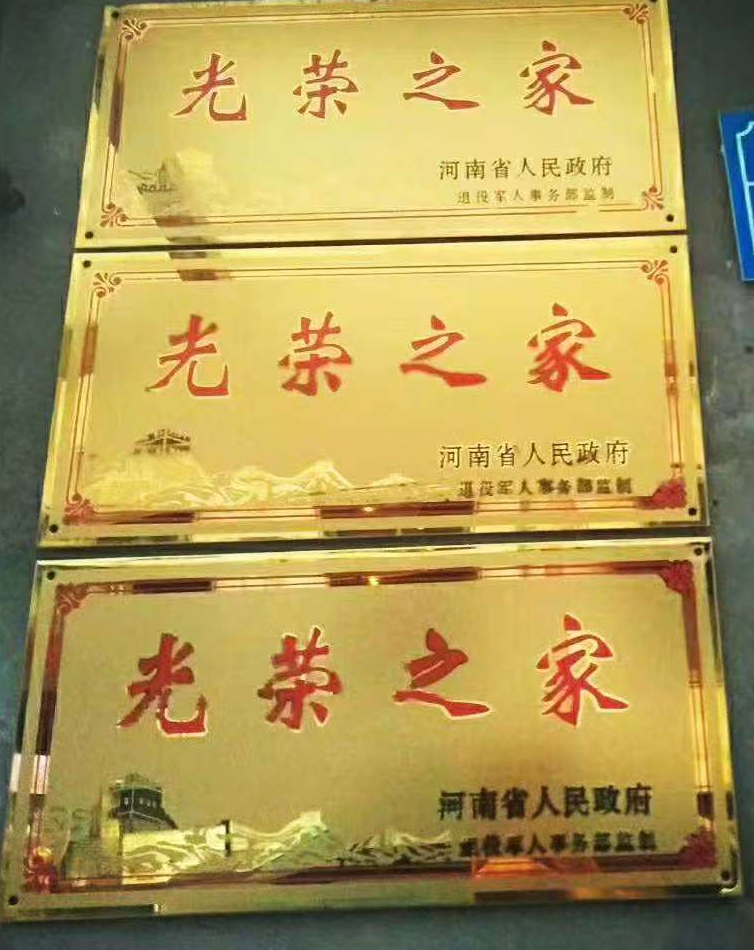 光荣之家
河南省人民政府
退役军人事务部监制
光荣之家
河南省人民政府
退役军人事务部监制
光荣之家
河南省人民政府
退役军人事务部监制